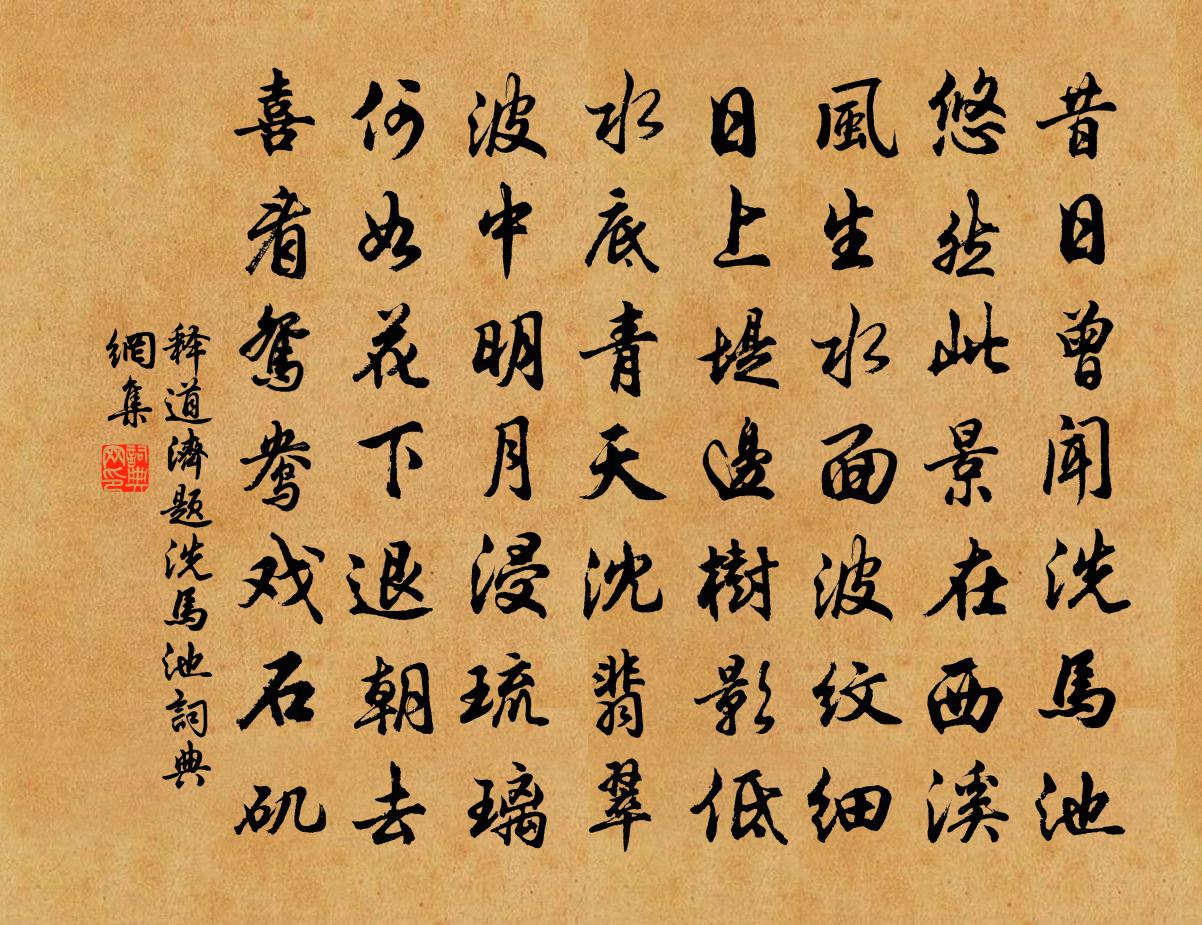 昔日曾聞洗馬池
悠然此景在西溪
風生水面波紋細
日上堤邊樹影低
水底青天沈翡翠
波中明月浸琉璃
何如花下退朝去
喜看鴛鴦戏石矶
释道濟题洗馬池詞典
網集
詞典
网印